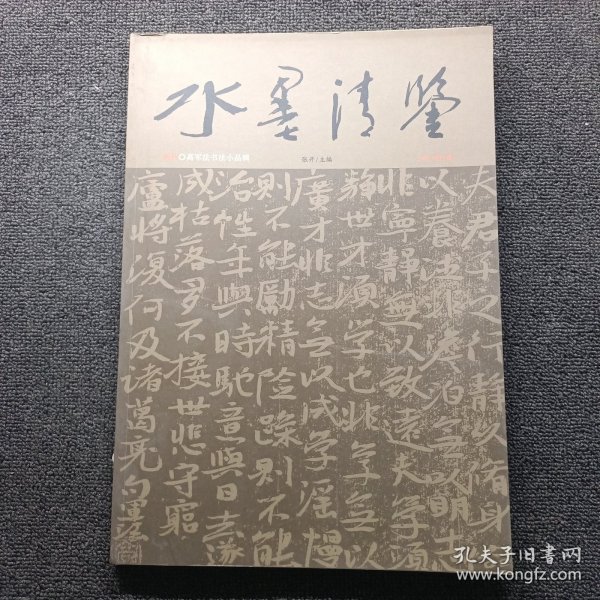 水墨清鉴
高军法书法小品辑
张卉/主编
夫君子之行静以脩身
以养德非澹泊无以明志
非宁静无以致远夫学须
静也才须学也非学无以
广才非志无以成学淫慢
则不能励精险躁则不能
治性年与时驰意与日去遂
成枯落多不接世悲守穷
庐将复何及诸葛亮句军法
孔夫子旧书网
www.kongfz.com